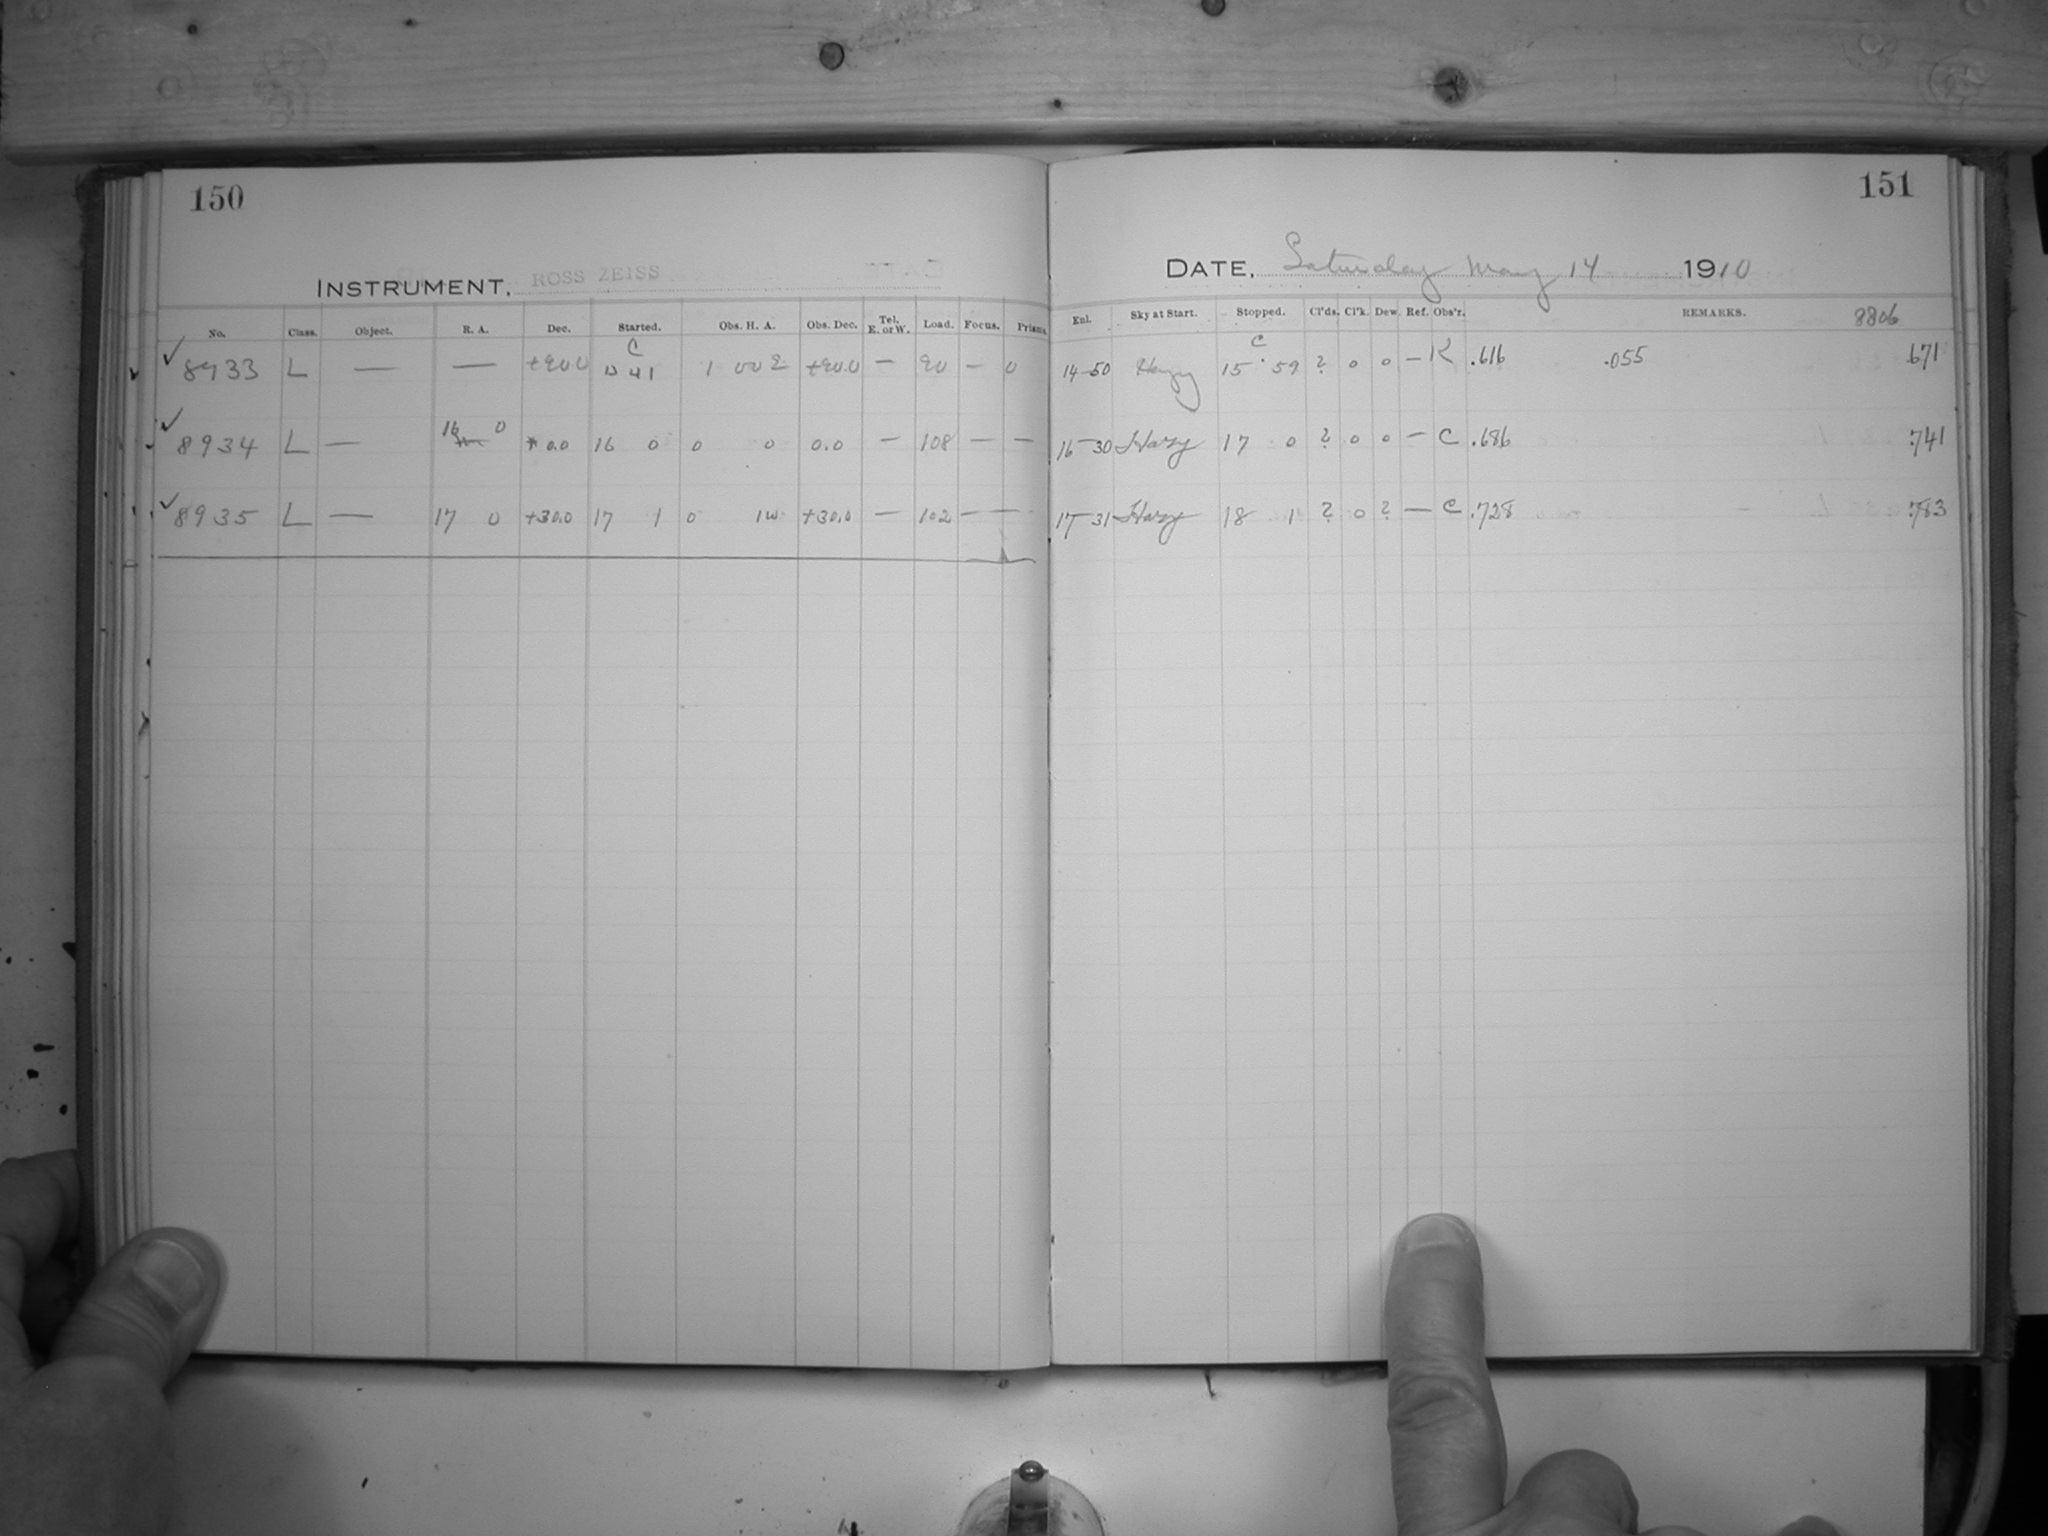 150
INSTRUMENT, ROSS ZEISS
No. Class. Object. R. A. Dec. Started. Obs. H. A. Obs. Dec. Tel. E. or W. Load. Focus. Prisms.
C
8933 L — — +90.0 41 1 00 E +90.0 — 90 — 0
8934 L — 16 0 0.0 16 0 0 0 0.0 — 108 — —
8935 L — 17 0 +30.0 17 1 0 1W +30.0 — 102 — —
151
DATE, Saturday May 14 1910
Enl. Sky at Start. Stopped. Cl'ds. Cl'k. Dew. Ref. Obs'r. REMARKS. 8806
C
14-50 Hazy 15 59 ? 0 0 — K .616 .055 .671
16-30 Hazy 17 0 ? 0 0 — C .686 .741
17-31 Hazy 18 1 ? 0 ? — C .728 .783